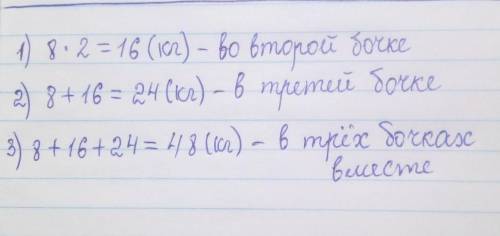 1) 8 · 2 = 16 (кг) – во второй бочке
2) 8 + 16 = 24 (кг) – в третей бочке
3) 8 + 16 + 24 = 48 (кг) – в трёх бочках
вместе